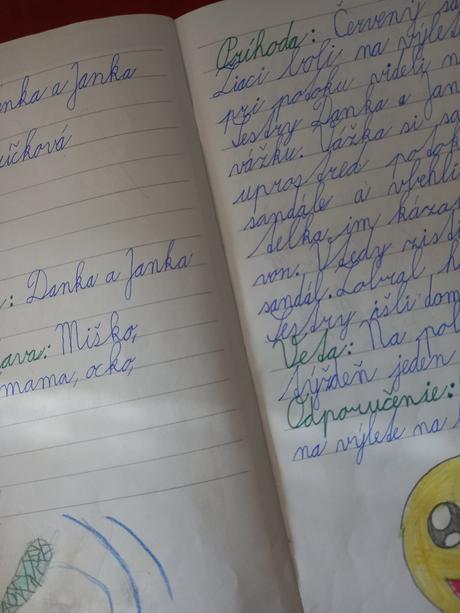 a Janka
íčková
: Danka a Janka
ava: Miško,
mama, ocko,
Príhoda: Červený
Žiaci boli na výle
pri potoku videli
Sestry Danka a Jan
vážku. Vážka si sa
upros tred potok
sandále a vbehli
telka im káza
von. Vtedy zisti
sandál. Zobral h
Sestry išli dom
Veta: Na
týždeň jeden
Odporučenie:
na výlete na